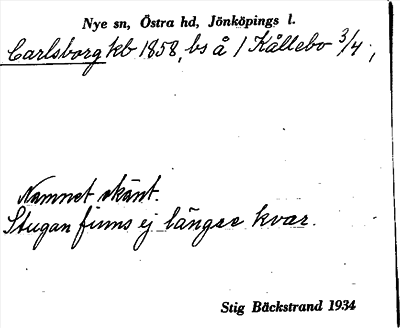 Nye sn, Östra hd, Jönköpings l.
Carlsborg kb 1858, bs å 1 Kållebo 3/4,
Namnet okänt.
Stugan finns ej längre kvar.
Stig Bäckstrand 1934